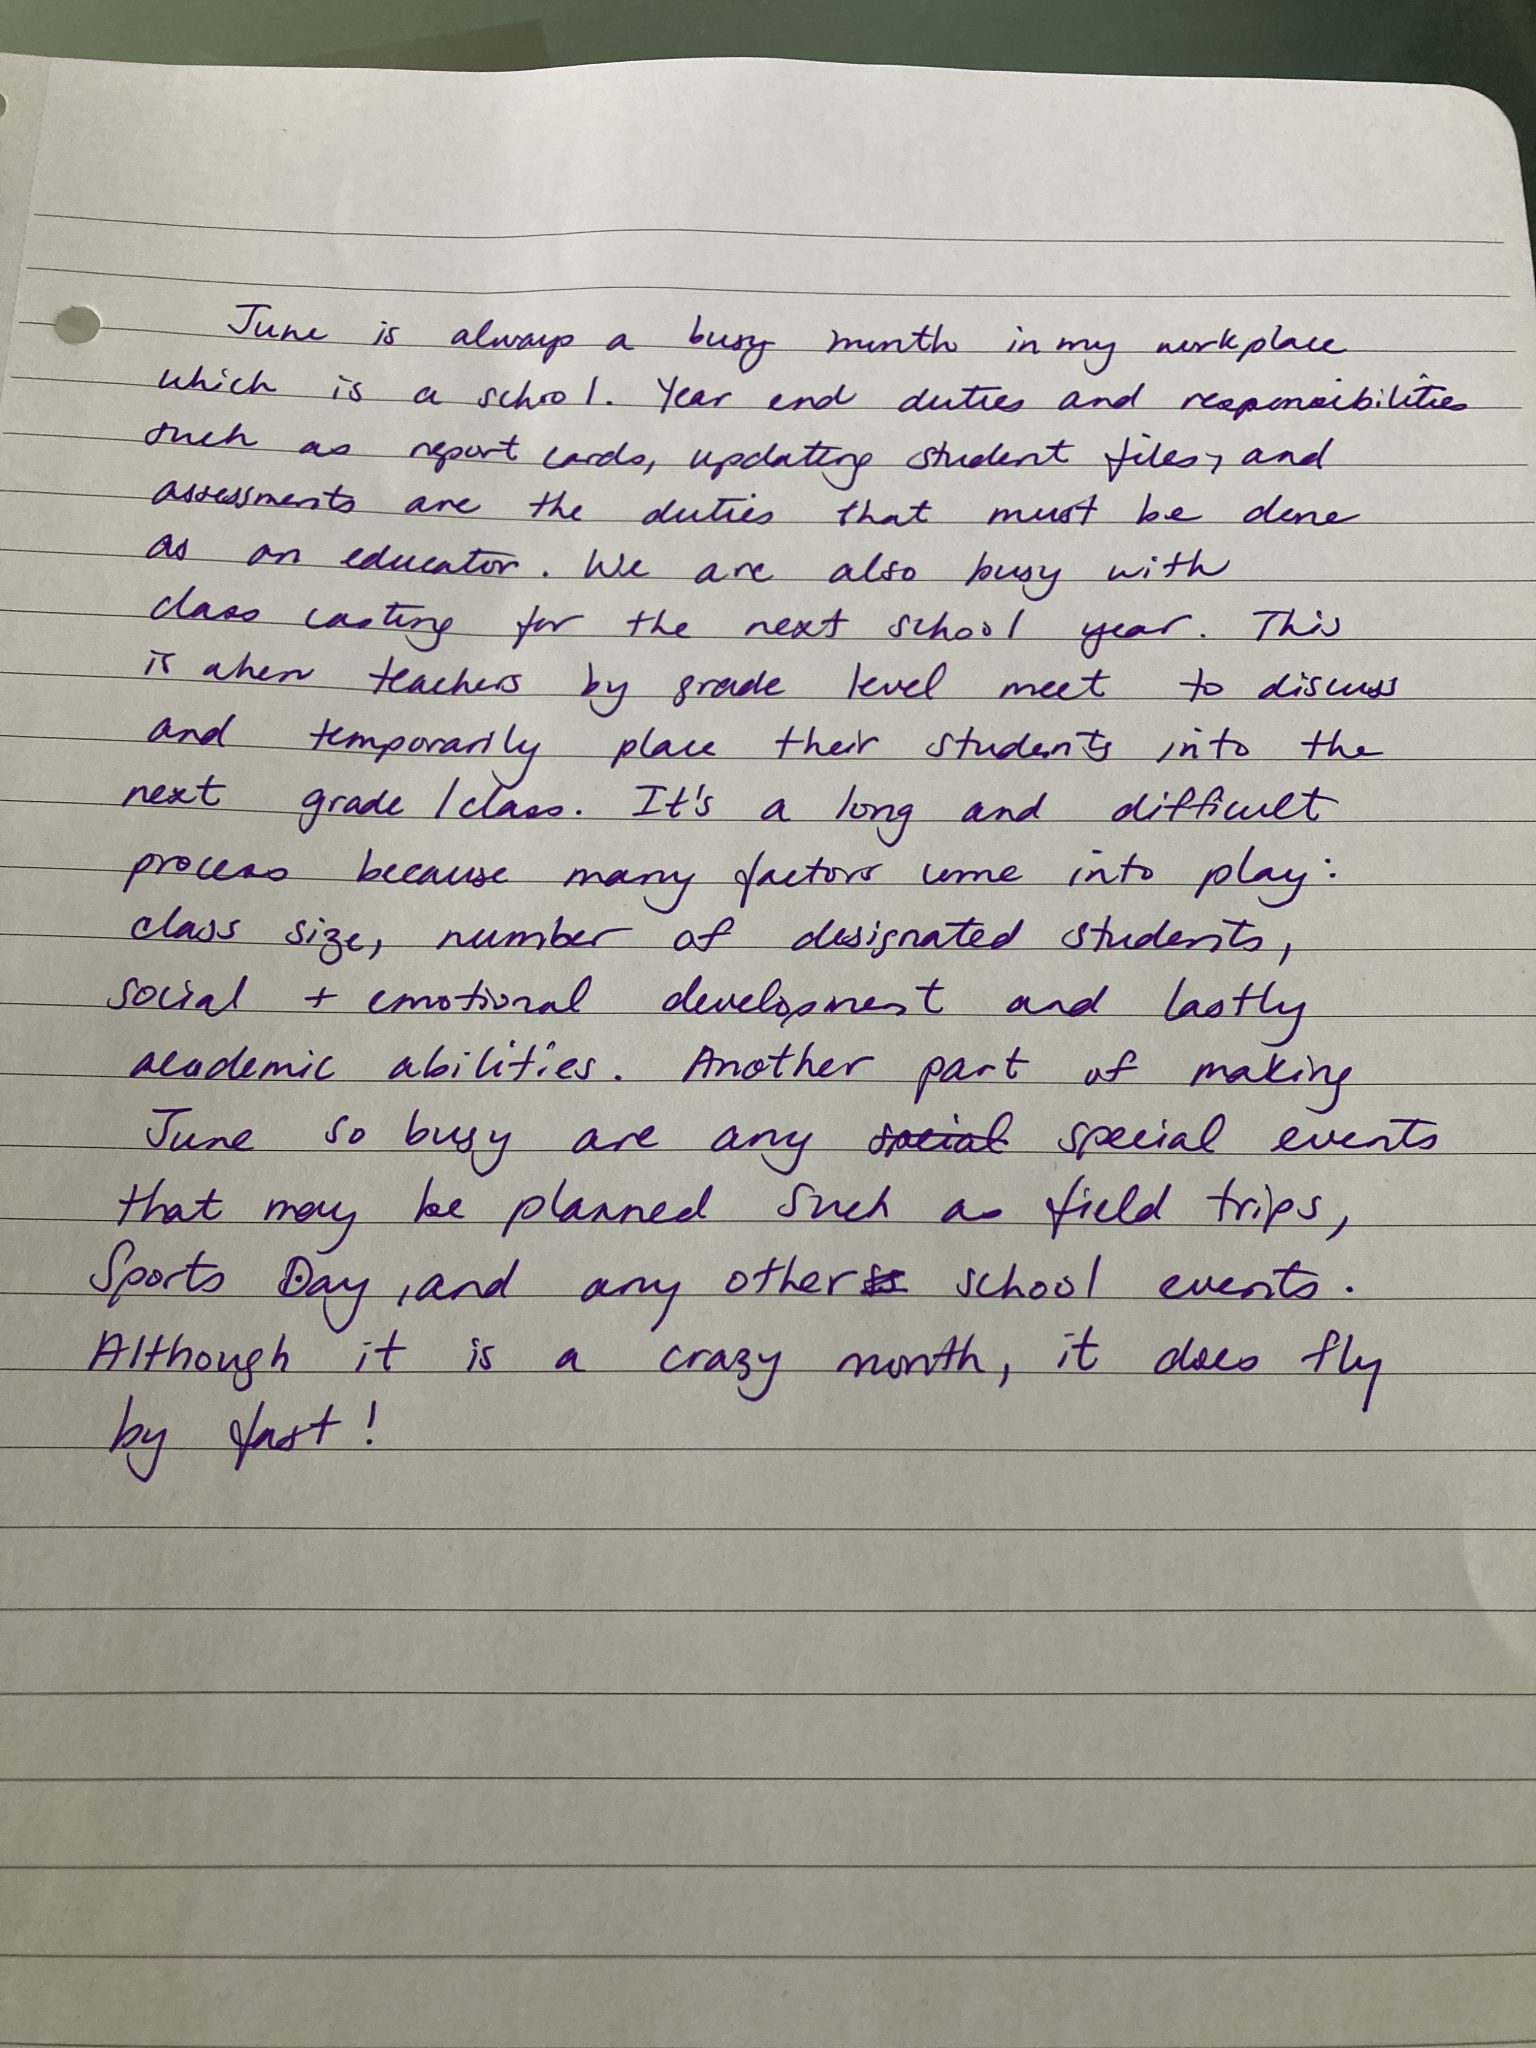 June is always a busy month in my workplace
which is a school. Year end duties and responsibilities
such as report cards, updating student files, and
assessments are the duties that must be done
as an educator. We are also busy with
class casting for the next school year. This
is when teachers by grade level meet to discuss
and temporarily place their students into the
next grade / class. It's a long and difficult
process because many factors come into play:
class size, number of designated students,
social + emotional development and lastly
academic abilities. Another part of making
June so busy are any social special events
that may be planned such as field trips,
Sports Day, and any other school events.
Although it is a crazy month, it does fly
by fast!